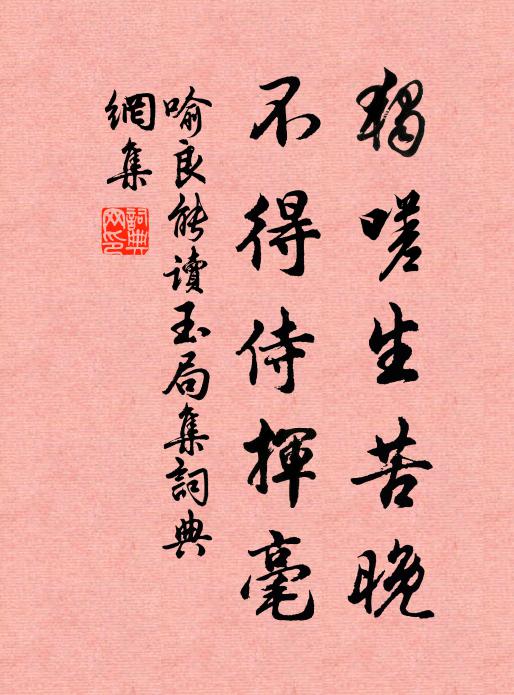 獨嗟生苦晚
不得侍揮毫
喻良能讀玉局集詞典
網集
詞典網印